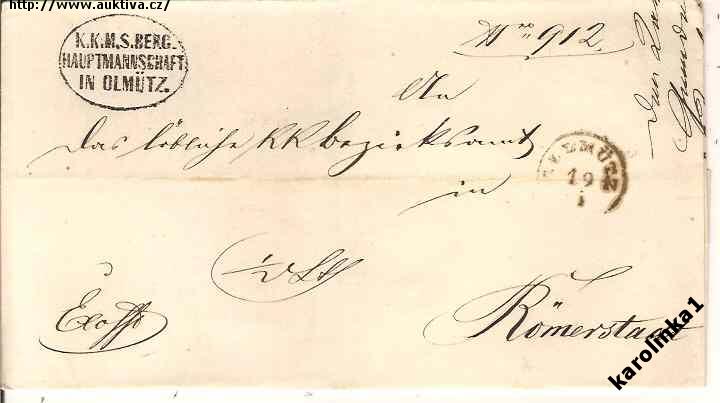 http://www.auktiva.cz/
K.K.M.S.BERG-
HAUPTMANNSCHAFT
IN OLMÜTZ.
Nro 912
An
Das löbliche KK Bezirksamt
in
OLMÜTZ
19
1
Exoffo
Römerstadt
karolinka1